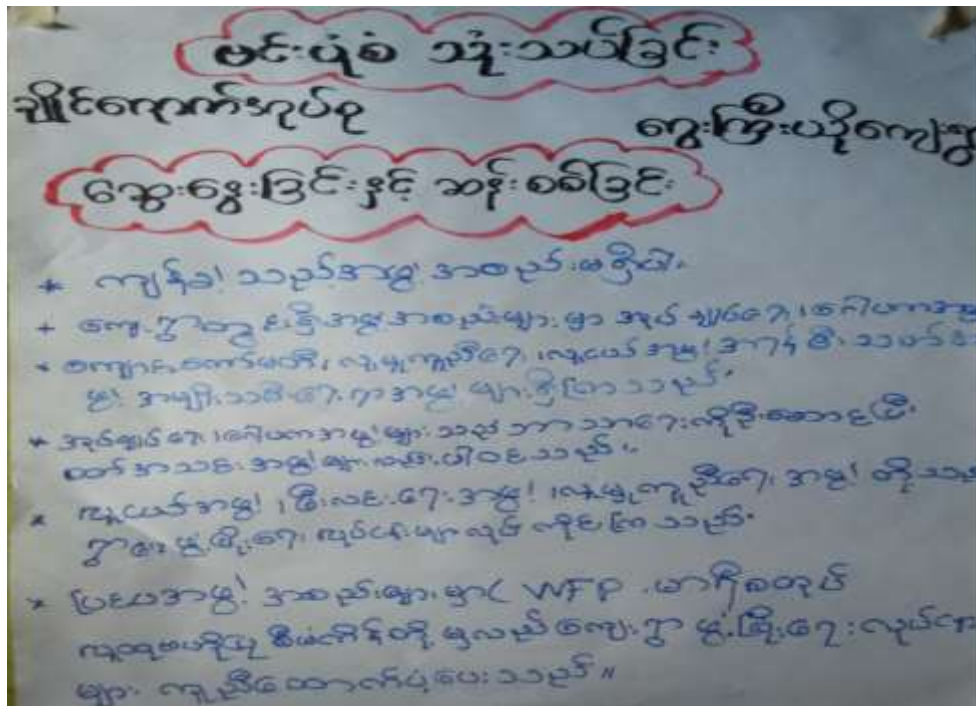 ဗင်းပုံစံ သုံးသပ်ခြင်း
ချိုင်းကောက်အုပ်စု
ကွေးကြီးယိုကျေးရွာ
ဆွေးနွေးခြင်းနှင့် ဆန်းစစ်ခြင်း
* ကျန်ခဲ့ သည့်အဖွဲ့ အစည်းမရှိပါ။
+ ကျေးရွာတွင်းရှိအဖွဲ့အစည်းများမှာ အုပ်ချုပ်ရေး၊ ဂေါပကအဖွဲ့
* ကျောင်းကော်မတီ၊ လူမှုကူညီရေး၊ လူငယ်အဖွဲ့၊
ဖွဲ့၊ အမျိုးသမီးရေးရာအဖွဲ့ များရှိကြသည်။
* အုပ်ချုပ်ရေး၊ ဂေါပကအဖွဲ့များသည် ဘာသာရေးကိုဦးဆောင်ပြီး
အသင်းအဖွဲ့များလည်းပါဝင်သည်။
* လူငယ်အဖွဲ့၊ မီးလင်းရေးအဖွဲ့၊ လူမှုကူညီရေးအဖွဲ့ တို့သည်
ရွာဖွံ့ဖြိုးရေးလုပ်ငန်းများလုပ်ကိုင်ကြသည်။
* ပြင်ပအဖွဲ့ အစည်းများမှာ WFP
စီမံကိန်းတို့မှလည်ကျေးရွာ ဖွံ့ဖြိုးရေးလုပ်ငန်း
များ ကူညီထောက်ပံ့ပေးသည်။